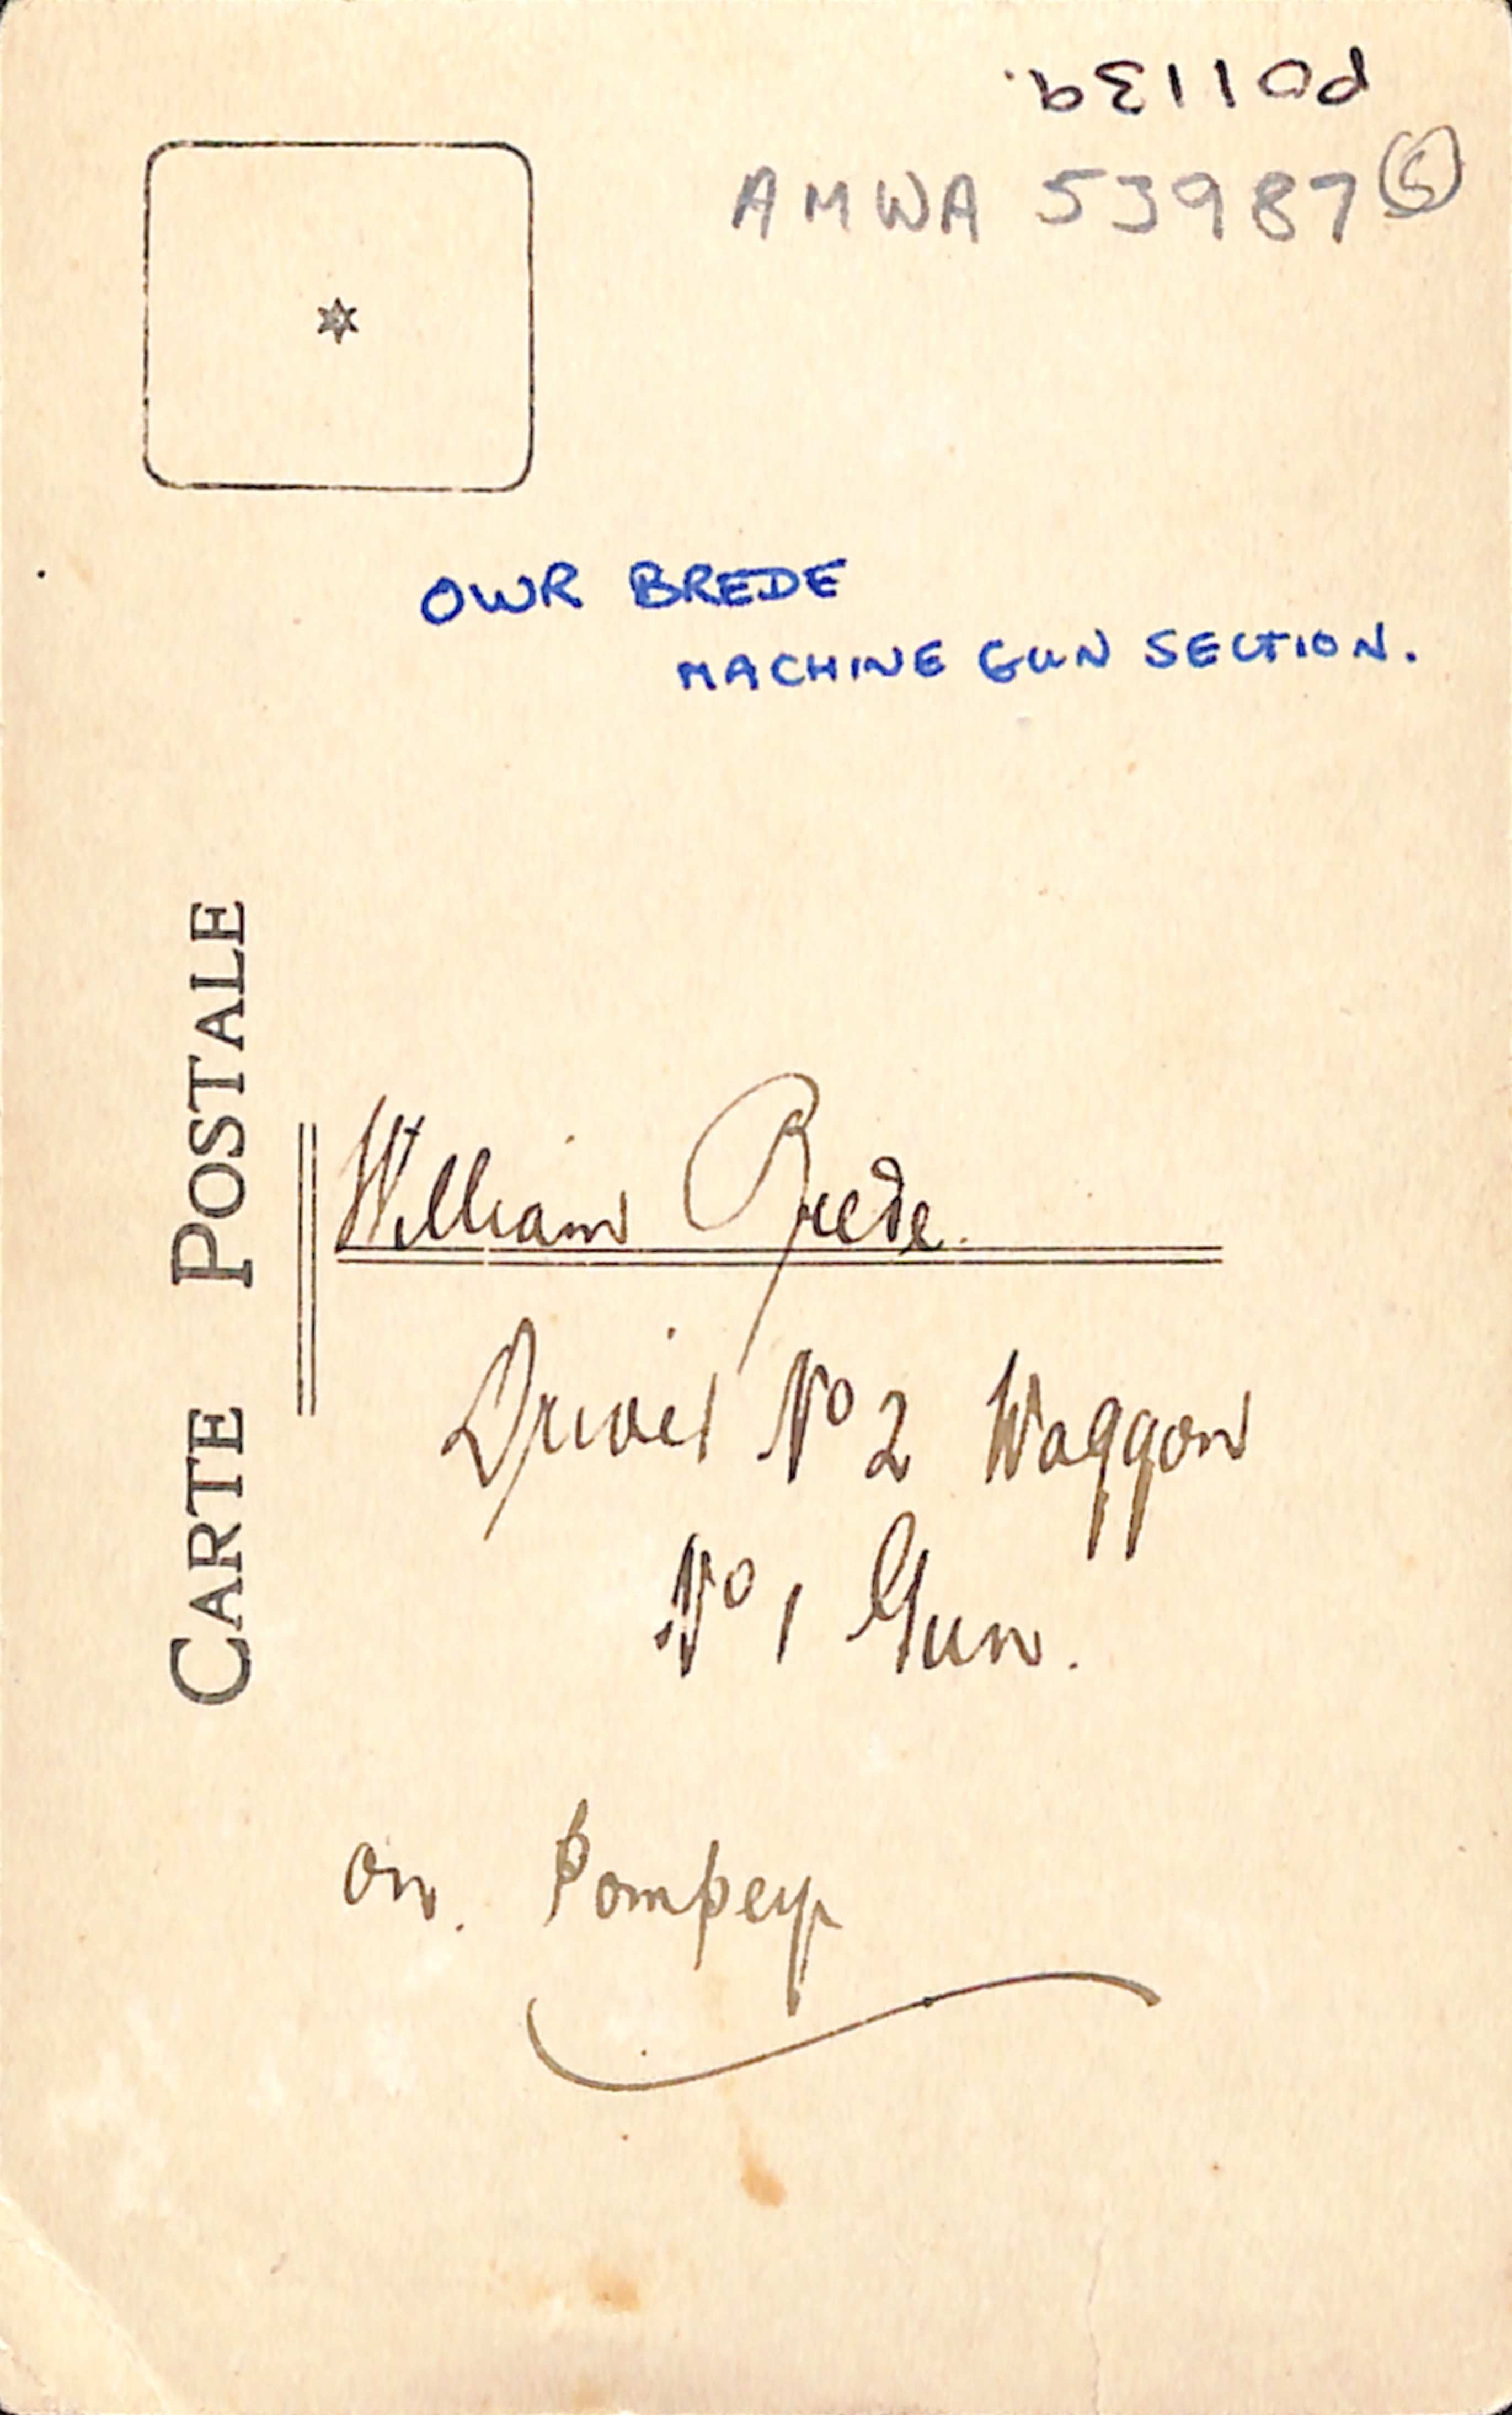 P01139.
AMWA 53987 5
OWR BREDE
MACHINE GUN SECTION.
CARTE POSTALE
William Brede.
Driver No 2 Waggon
No 1 Gun.
on. Pompey